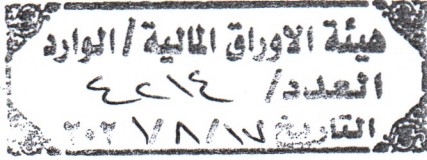 هيئة الاوراق المالية / الوارد
العدد/ ٤٢١٤
التاريخ ١٧/ ٨ / ٢٠٢١